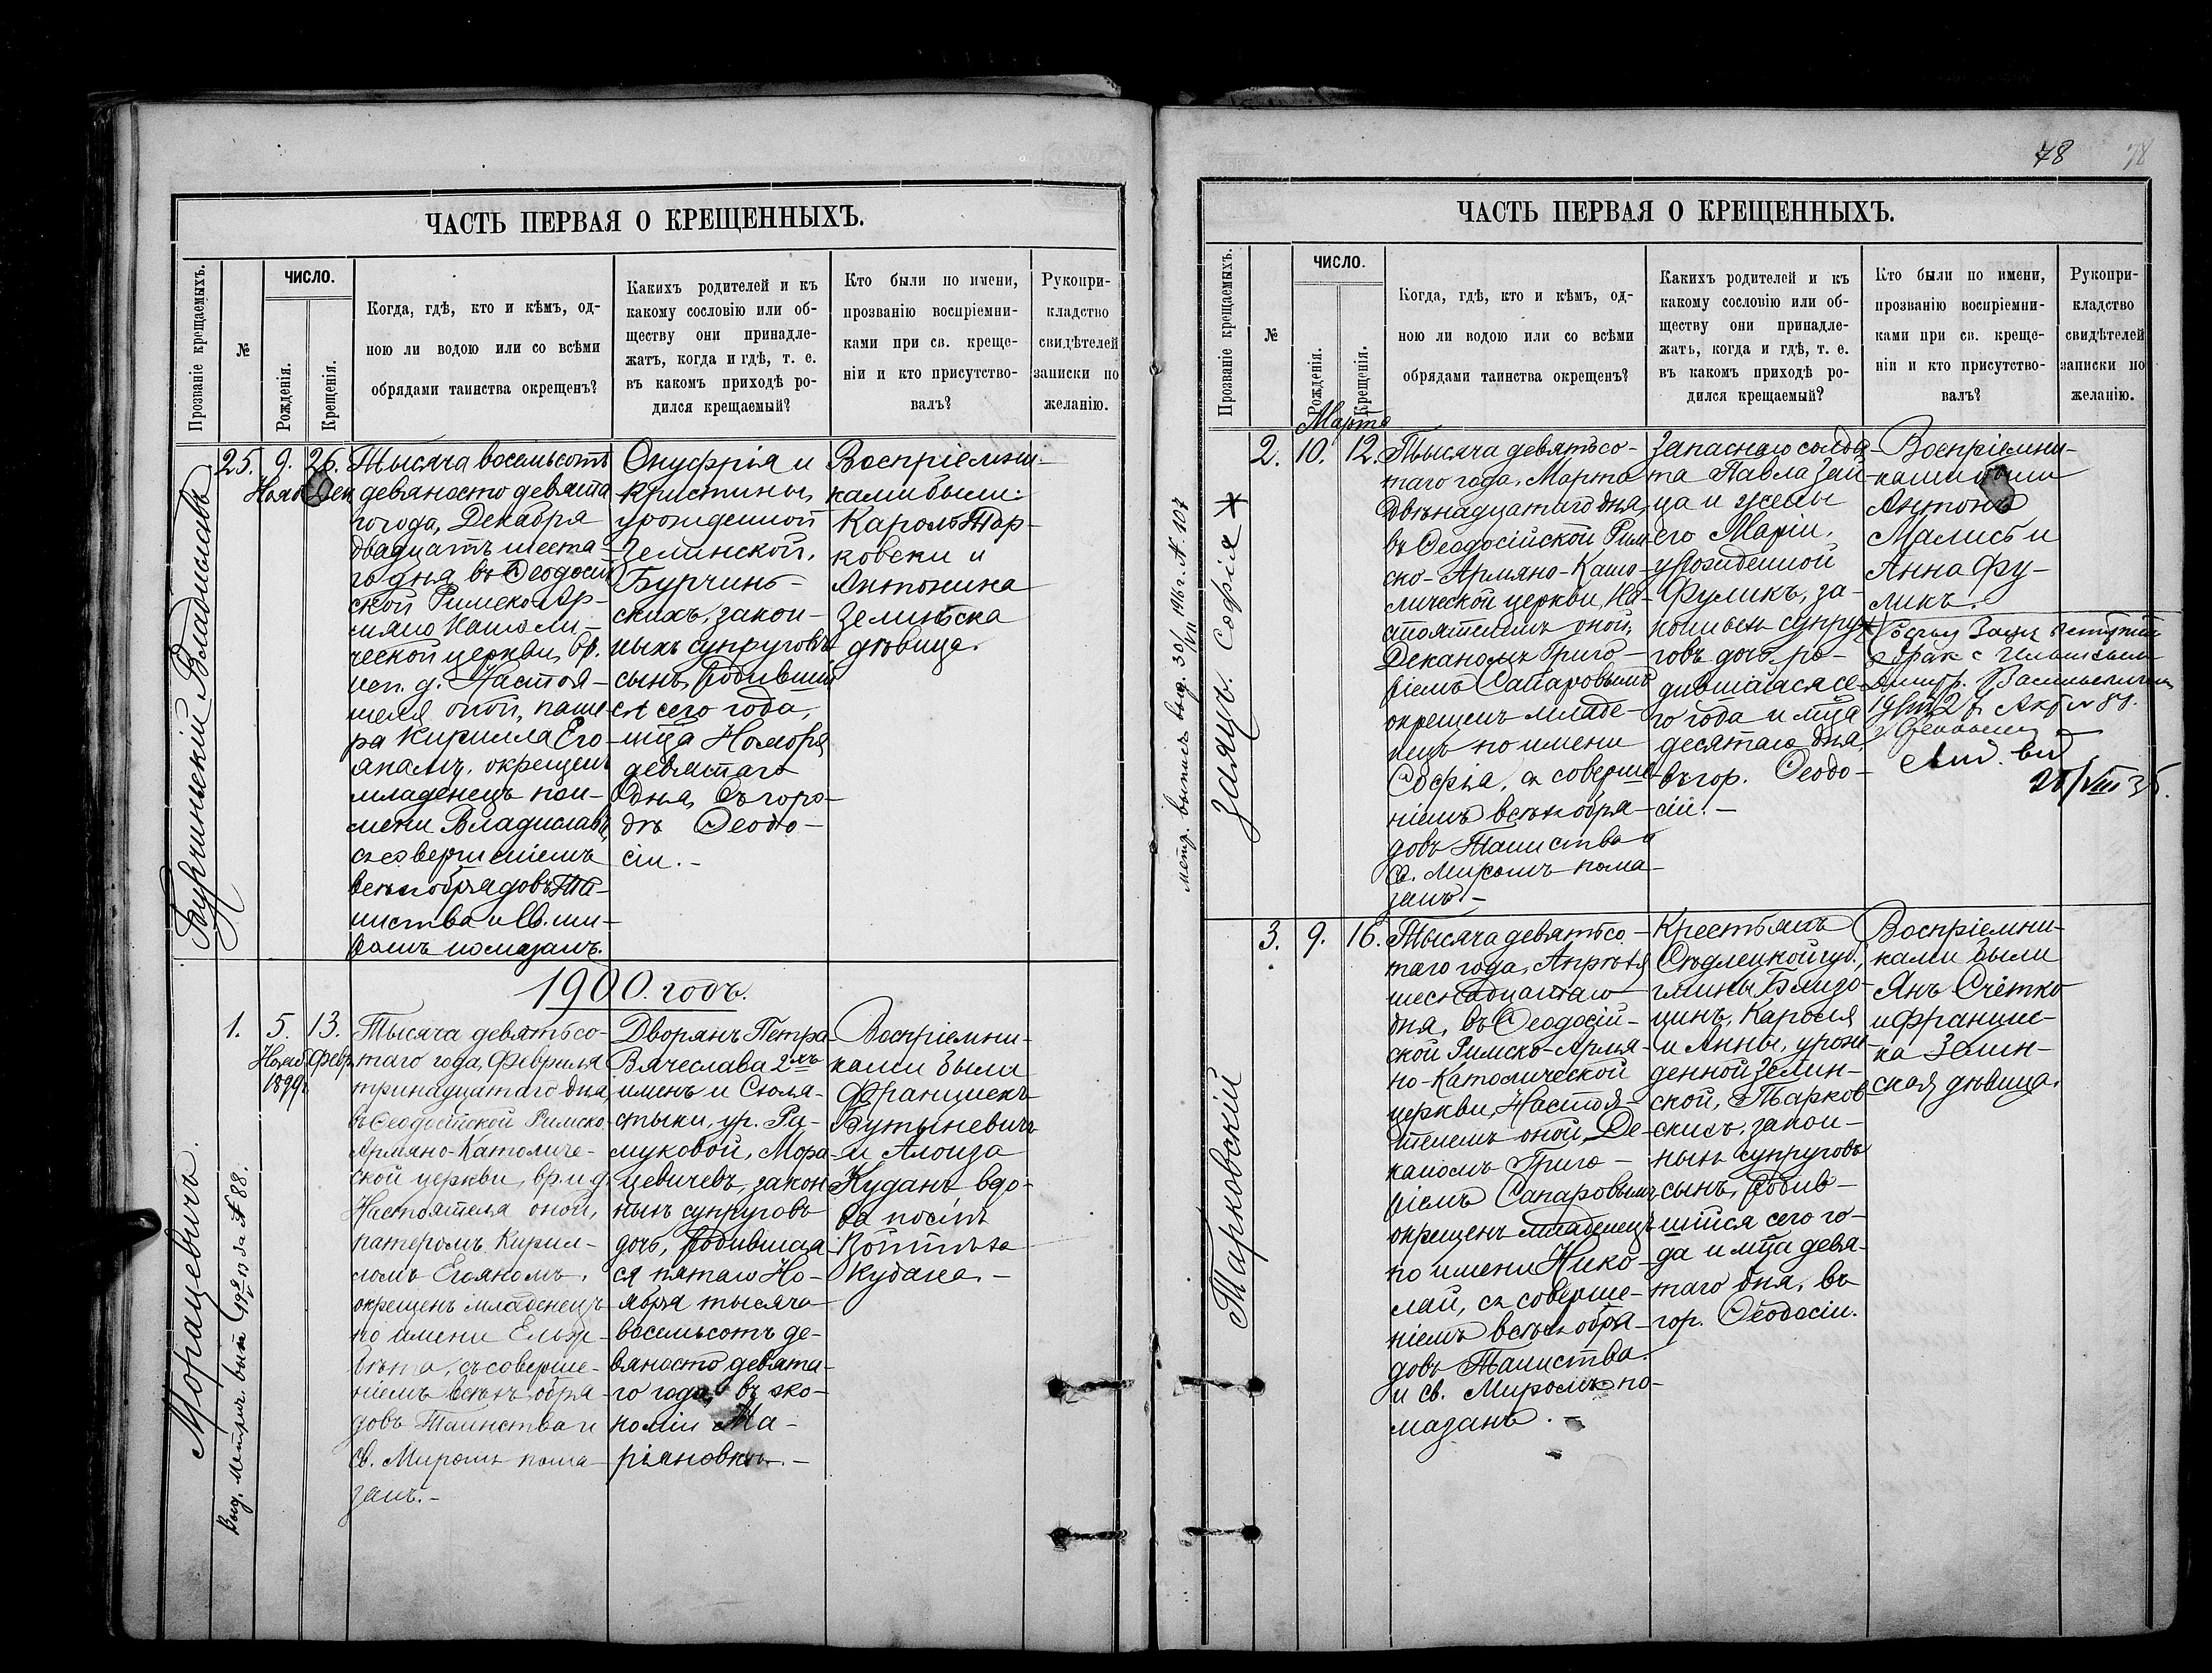 ЧАСТЬ ПЕРВАЯ О КРЕЩЕННЫХЪ.
Прозваніе крещаемыхъ.
№
ЧИСЛО.
Рожденія.
Крещенія.
Когда, гдѣ, кто и кѣмъ, од-
ною ли водою или со всѣми
обрядами таинства окрещенъ?
Какихъ родителей и къ
какому сословію или об-
ществу они принадле-
жатъ, когда и гдѣ, т. е.
въ какомъ приходѣ ро-
дился крещаемый?
Кто были по имени,
прозванію воспріемни-
ками при св. креще-
ніи и кто присутство-
валъ?
Рукопри-
кладство
свидѣтелей
записки по
желанію.
Бурчинскій Владиславъ
25.
9.
Нояб
26.
Дек
Тысяча восемьсотъ
девяносто девята
го года, Декабря
двадцать шеста-
го дня въ Ѳеодосій
ской Римско Ар-
мяно Католи-
ческой церкви, вр.
исп. д. Настоя-
теля оной, пате
ра Кирилла Его
яномъ, окрещенъ
младенецъ по и-
мени Владиславъ,
съ совершеніемъ
всѣхъ обрядовъ Та-
инства и Св. ми-
ромъ помазанъ.
Онуфрія и
Кристины,
урожденной
Зелинской,
Бурчинь-
скихъ, закон-
ныхъ супруговъ
сынъ, родившій
ся сего года,
мца Ноября
девятаго
дня, въ горо-
дѣ Ѳеодо-
сіи.-
Воспріемни-
ками были:
Кароль Тар-
ковски и
Антонина
Зелинска
дѣвица.
1900. годъ.
Морацевичъ.
Выд. метрич. вып.
за № 88.
1.
5.
Нояб.
1899г.
13.
Февр.
Тысяча девятьсо-
таго года, Февраля
тринадцатаго дня
въ Ѳеодосійской Римско
Армяно-Католиче-
ской церкви, вр. и. д.
Настоятеля оной,
патеромъ Кирил-
ломъ Егояномъ,
окрещенъ младенецъ
по имени Елиза-
вета, съ соверше-
ніемъ всѣхъ обря-
довъ Таинства и
Св. Миромъ пома-
занъ.-
Дворянъ Петра
Вячеслава 2хъ
именъ и Схоля-
стыки, ур.
Мора-
цевичевъ, закон
ныхъ супруговъ
дочь, родившая
ся пятаго Но-
ября тысяча
восемьсотъ де-
вяносто девята-
го года въ эко-
номіи Ма-
ріяновкѣ.-
Воспріемни-
ками были
Францискъ
Бутыневичъ
и Алоиза
Куданъ вдо-
ва послѣ
Войтѣха
Кудана.-
78
78
ЧАСТЬ ПЕРВАЯ О КРЕЩЕННЫХЪ.
Прозваніе крещаемыхъ.
№
ЧИСЛО.
Рожденія.
Крещенія.
Когда, гдѣ, кто и кѣмъ, од-
ною ли водою или со всѣми
обрядами таинства окрещенъ?
Какихъ родителей и къ
какому сословію или об-
ществу они принадле-
жатъ, когда и гдѣ, т. е.
въ какомъ приходѣ ро-
дился крещаемый?
Кто были по имени,
прозванію воспріемни-
ками при св. креще-
ніи и кто присутство-
валъ?
Рукопри-
кладство
свидѣтелей
записки по
желанію.
Марта
метр. выпись выд. 30/VII 1916 г. № 107
Заяцъ. Софія ✶
2.
10.
12.
Тысяча девятьсо-
таго года, Марта
двѣнадцатаго дня,
въ Ѳеодосійской Рим
ско-Армяно-Като-
лической церкви, На-
стоятелемъ оной,
Деканомъ Григо-
ріемъ Сапаровымъ
окрещенъ младе-
нецъ по имени
Софія, съ соверше-
ніемъ всѣхъ обря-
довъ Таинства и
Св. Миромъ пома-
занъ.-
Запаснаго солда
та Павла Зай
ца и жены
его Маріи,
урожденной
Фуликъ, за-
конныхъ супру
говъ дочь, ро-
дившаяся се-
го года и мца
десятаго дня,
въ гор. Ѳеодо-
сіи.-
Воспріемни-
ками были
Антонъ
Малисъ и
Анна Фу-
ликъ.
Заяц вступила
в брак с
Дмитр. Васильевичем
Акт № 84.
28/VIII 35.
Тарковскій
3.
9.
16.
Тысяча девятьсо-
таго года, Апрѣля
шестнадцатаго
дня, въ Ѳеодосій-
ской Римско-Армя-
но-Католической
церкви, Настоя-
телемъ оной, Де-
каномъ Григо-
ріемъ Сапаровымъ
окрещенъ младенецъ
по имени Нико-
лай, съ соверше-
ніемъ всѣхъ обря-
довъ Таинства
и св. Миромъ по-
мазанъ.-
Крестьянъ
Сѣдлецкой губ.,
гмины
Кароля
и Анны, урож
денной Зелин-
ской, Тарков
скихъ, закон-
ныхъ супруговъ
сынъ, родив-
шійся сего го-
да и мца девя-
таго дня, въ
гор. Ѳеодосіи.
Воспріемни-
ками были
Янъ Счётко
и Францис-
ка Зелин-
ская дѣвица.